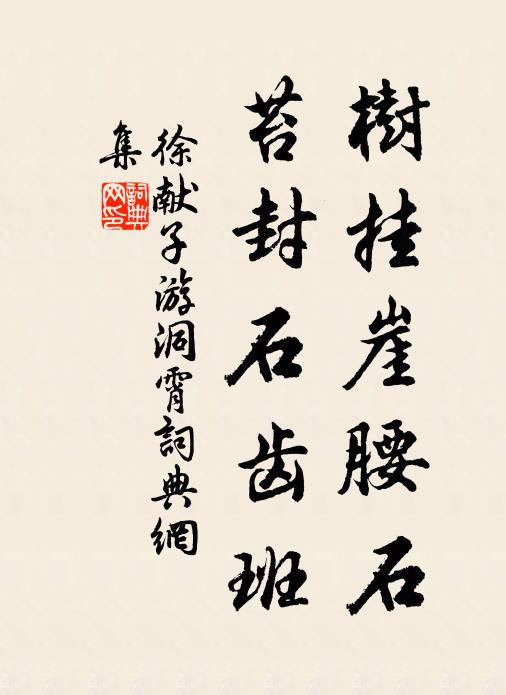 樹挂崖腰石
苔封石齿班
徐献子游洞霄詞典網
集
詞典网印